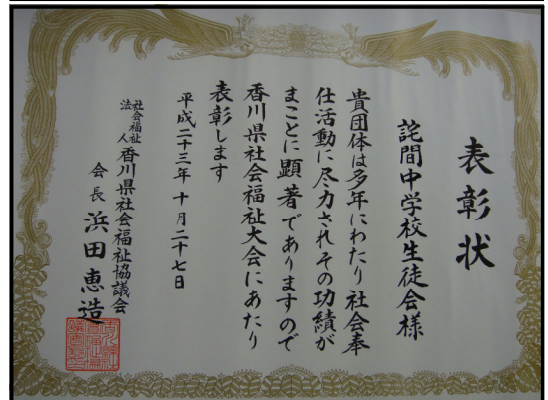 表彰状
詫間中学校生徒会様
貴団体は多年にわたり社会奉
仕活動に尽力されその功績が
まことに顕著でありますので
香川県社会福祉大会にあたり
表彰します
平成二十三年十月二十七日
社会福祉法人香川県社会福祉協議会
会長浜田恵造